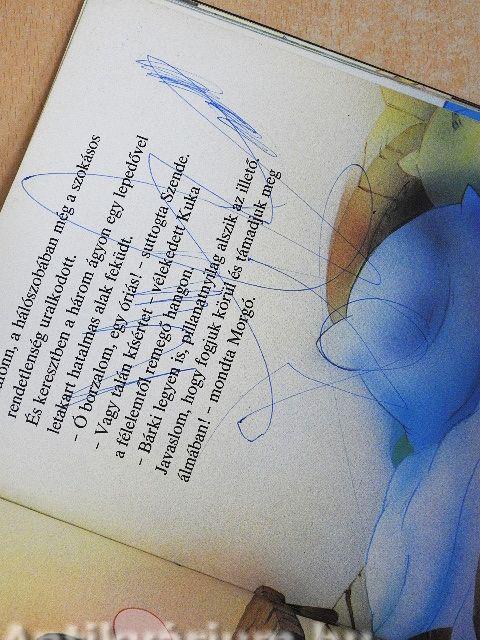 onn, a hálószobában még a szokásos
rendetlenség uralkodott.
És keresztben a három ágyon egy lepedővel
letakart hatalmas alak feküdt.
- Ó borzalom, egy óriás! - suttogta Szende.
- Vagy talán kísértet - vélekedett Kuka
a félelemtől remegő hangon.
- Bárki legyen is, pillanatnyilag alszik az illető.
Javaslom, hogy fogjuk körül és támadjuk meg
álmában! - mondta Morgó.
Antikvárium.hu